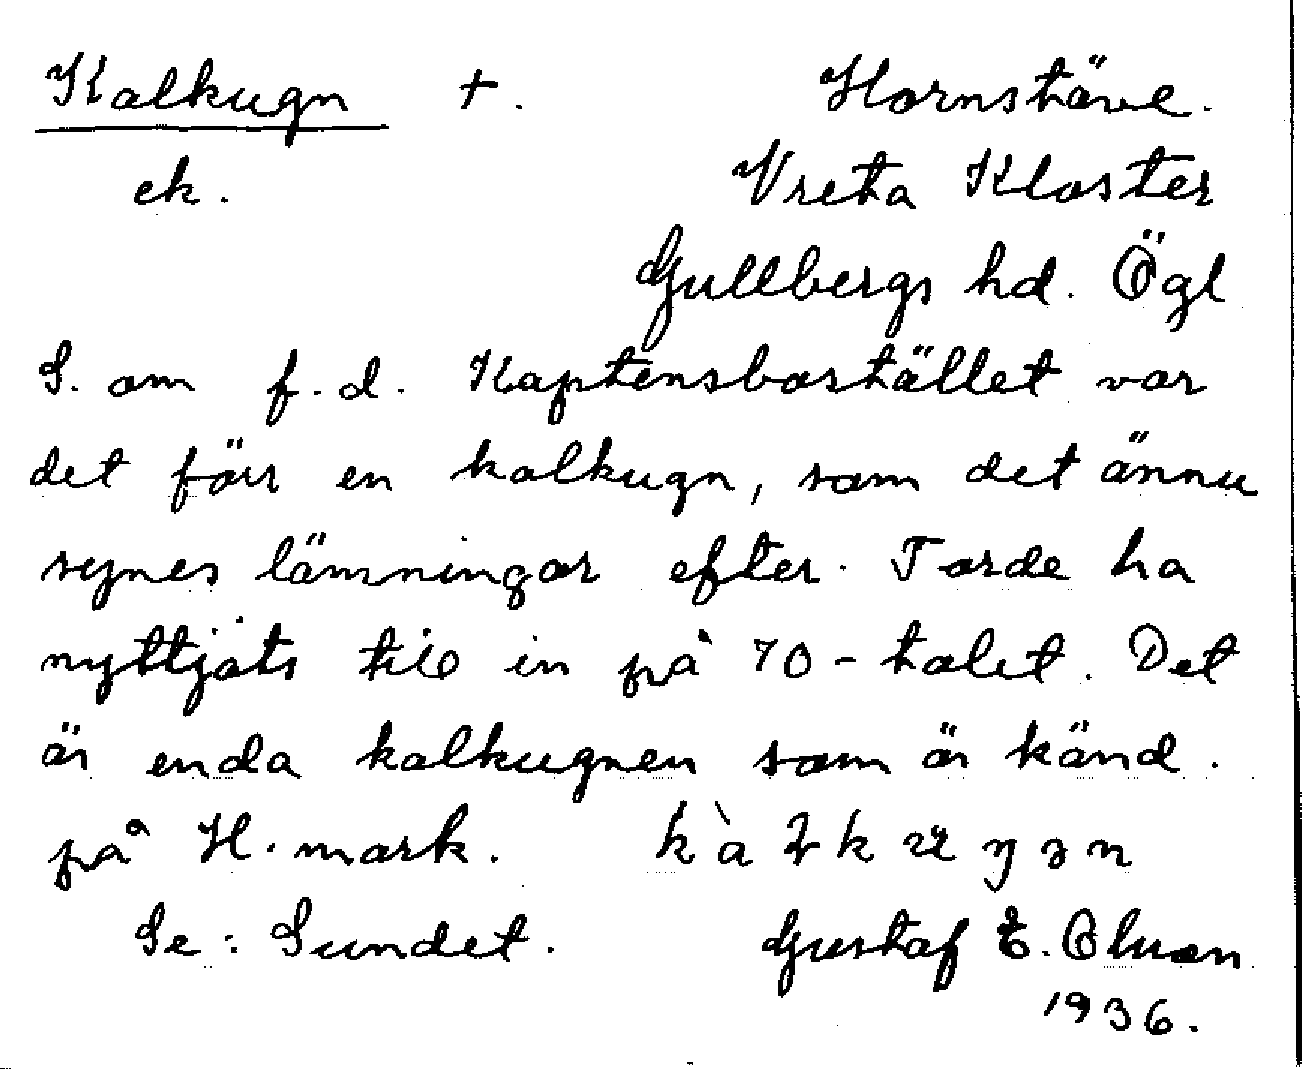 Kalkugn +. Hornstäve.
ek. Vreta Kloster
Gullbergs hd. Ögl
S. om f.d. Kaptensbostället var
det förr en kalkugn, som det ännu
synes lämningar efter. Torde ha
nyttjats till in på 70-talet. Det
är enda kalkugnen som är känd.
på H. mark.
Se: Sundet. Gustaf E.
1936.